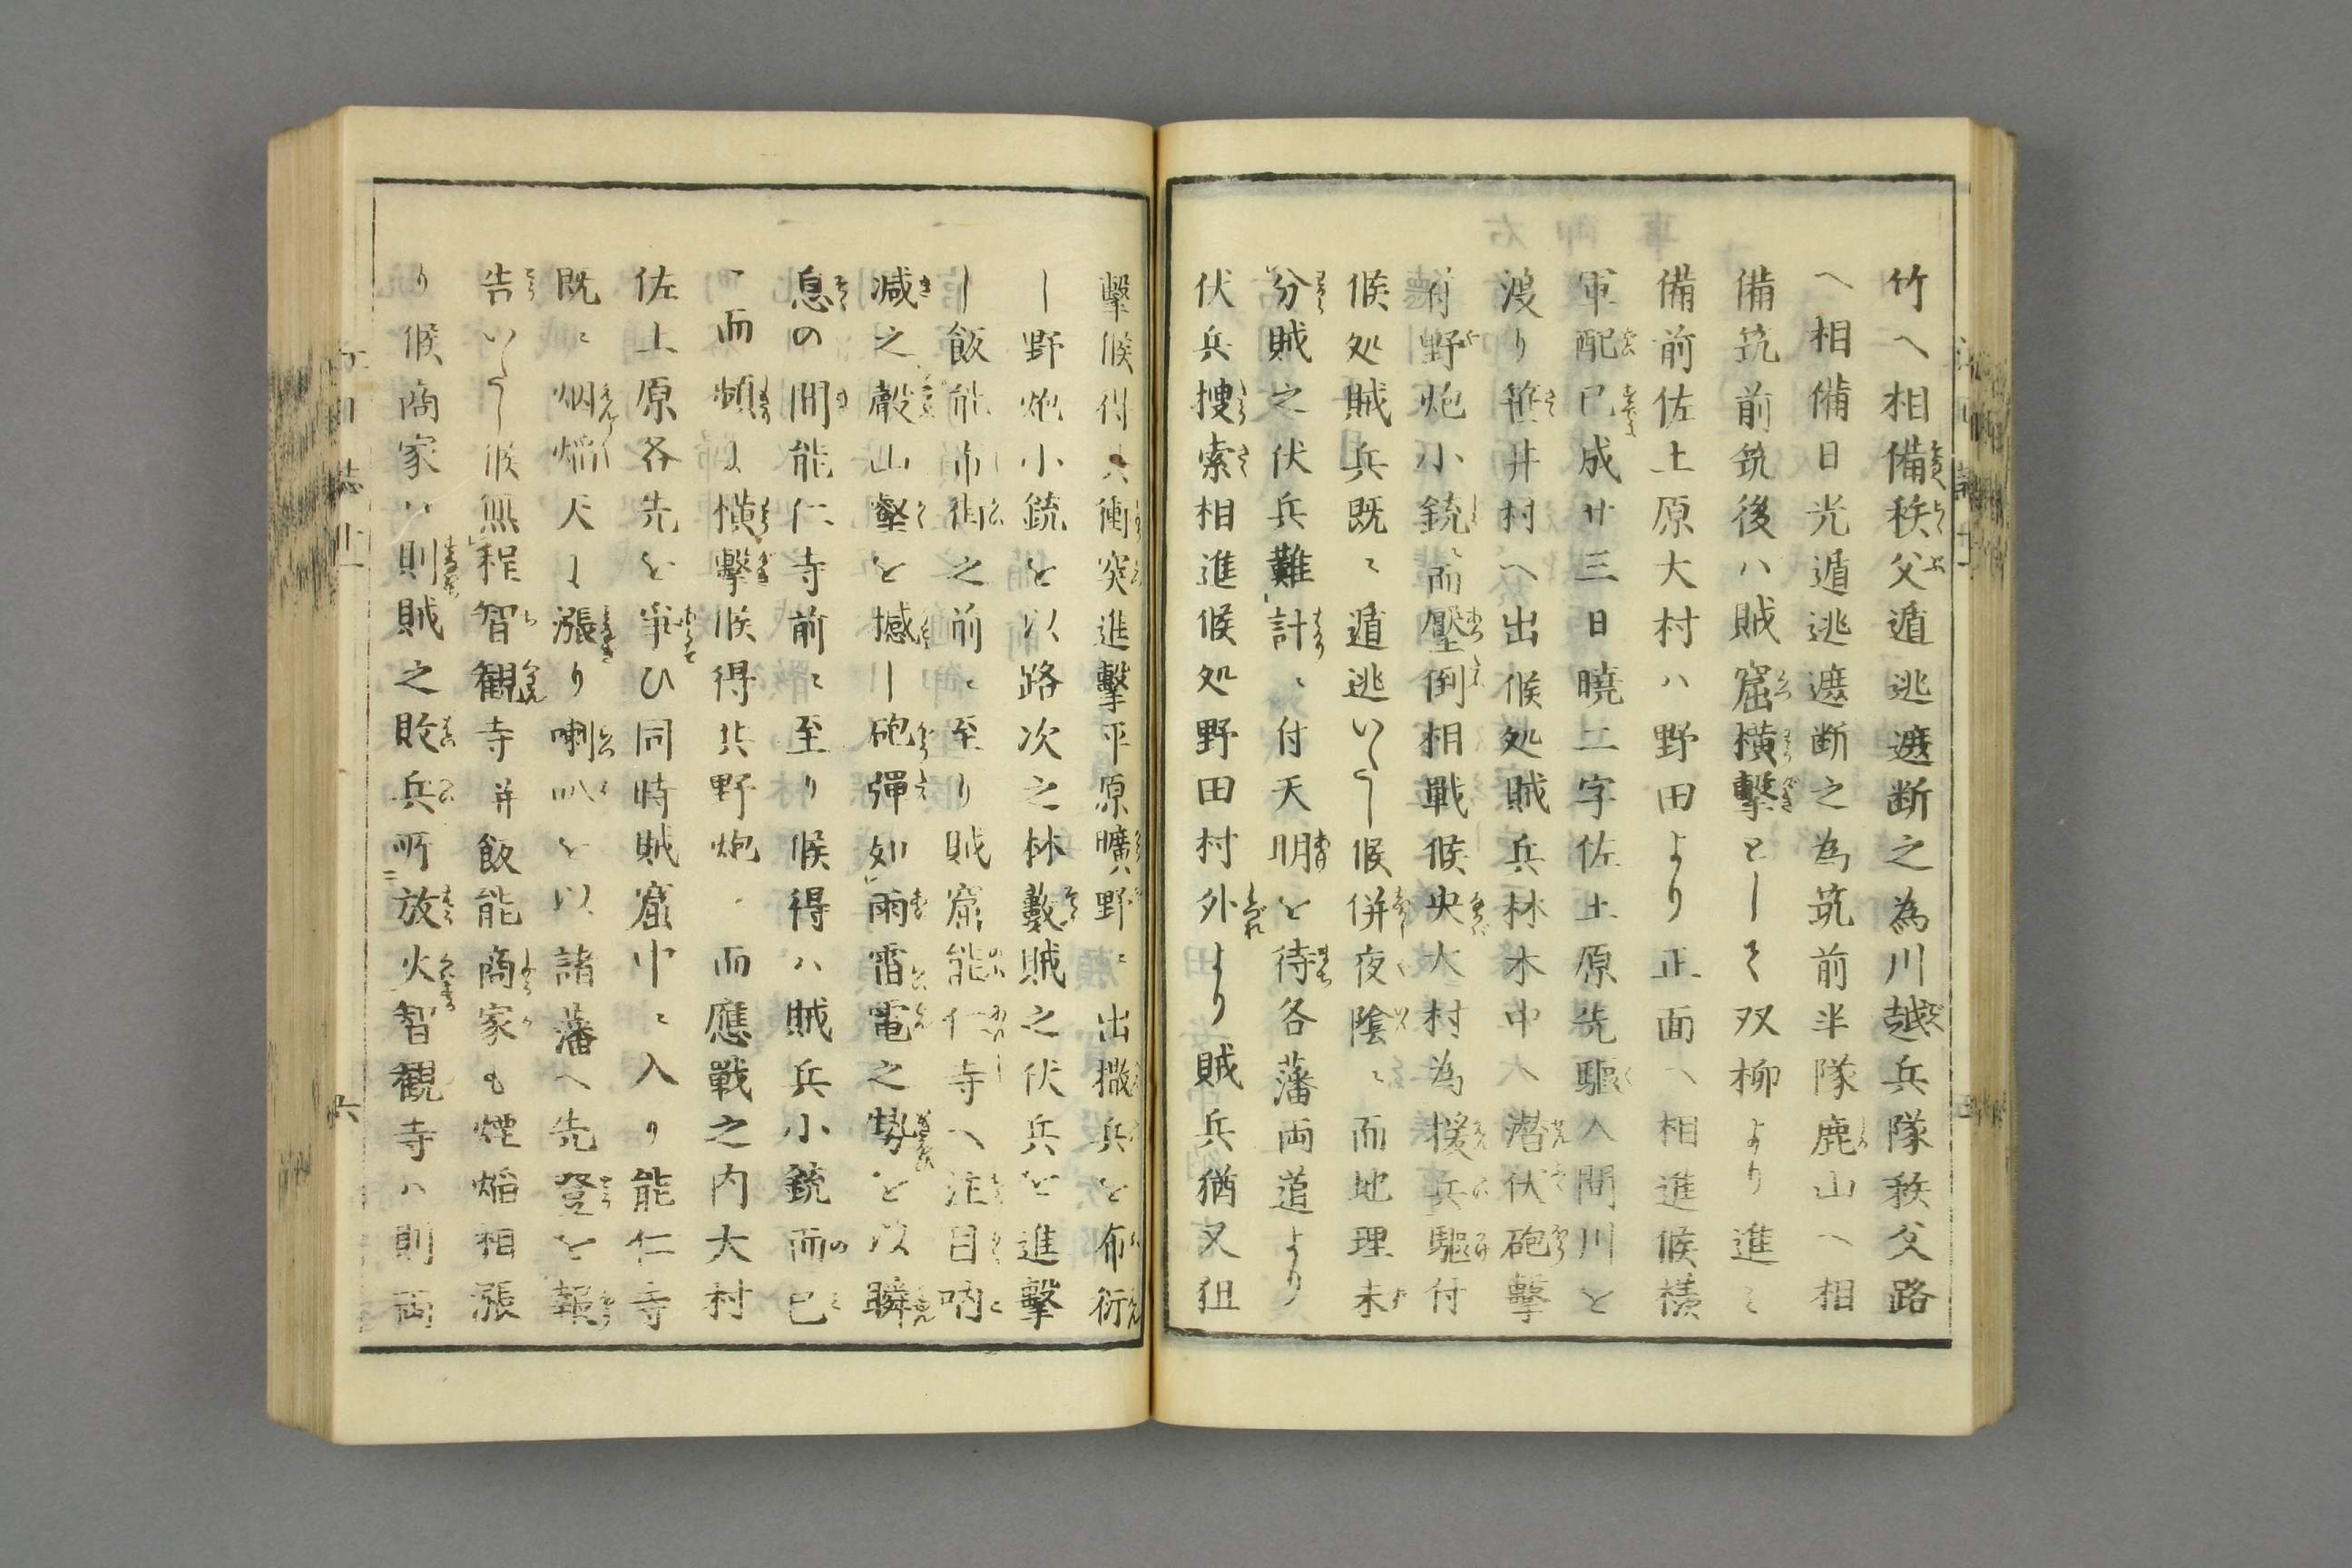 竹へ相備秩父遁逃遮断之為川越兵隊秩父路
へ相備日光遁逃遮断之為筑前半隊鹿山へ相
備筑前筑後ハ賊窟横撃として双柳より進ミ
備前佐土原大村ハ野田より正面へ相進候積
軍配已成廿三日暁二字佐土原先驅入間川を
渡り笹井村へ出候処賊兵林木中へ潜伏砲撃
野炮小銃ニ而壓倒相戦候央大村為援兵驅付
候処賊兵既ニ遁逃いたし候併夜陰ニ而地理未
分賊之伏兵難計ニ付天明を待各藩両道より
伏兵捜索相進候処野田村外より賊兵猶又狙
撃候得共衝突進撃平原曠野ニ出撒兵を布衍
し野炮小銃を以路次之林藪賊之伏兵を進撃
し飯能市街之前ニ至り賊窟能仁寺へ注目吶
減之聲山壑を撼し砲彈如雨雷電之勢を以瞬
息の間能仁寺前ニ至り候得ハ賊兵小銃而已
ニ而頻に横撃候得共野炮ニ而應戦之内大村
佐土原各先を争ひ同時賊窟中ニ入り能仁寺
既ニ烟焔天に漲り喇叭を以諸藩へ先登を報
告いたし候無程智観寺并飯能商家も煙焔相漲
り候商家ハ則賊之敗兵所放火智観寺ハ則両
六